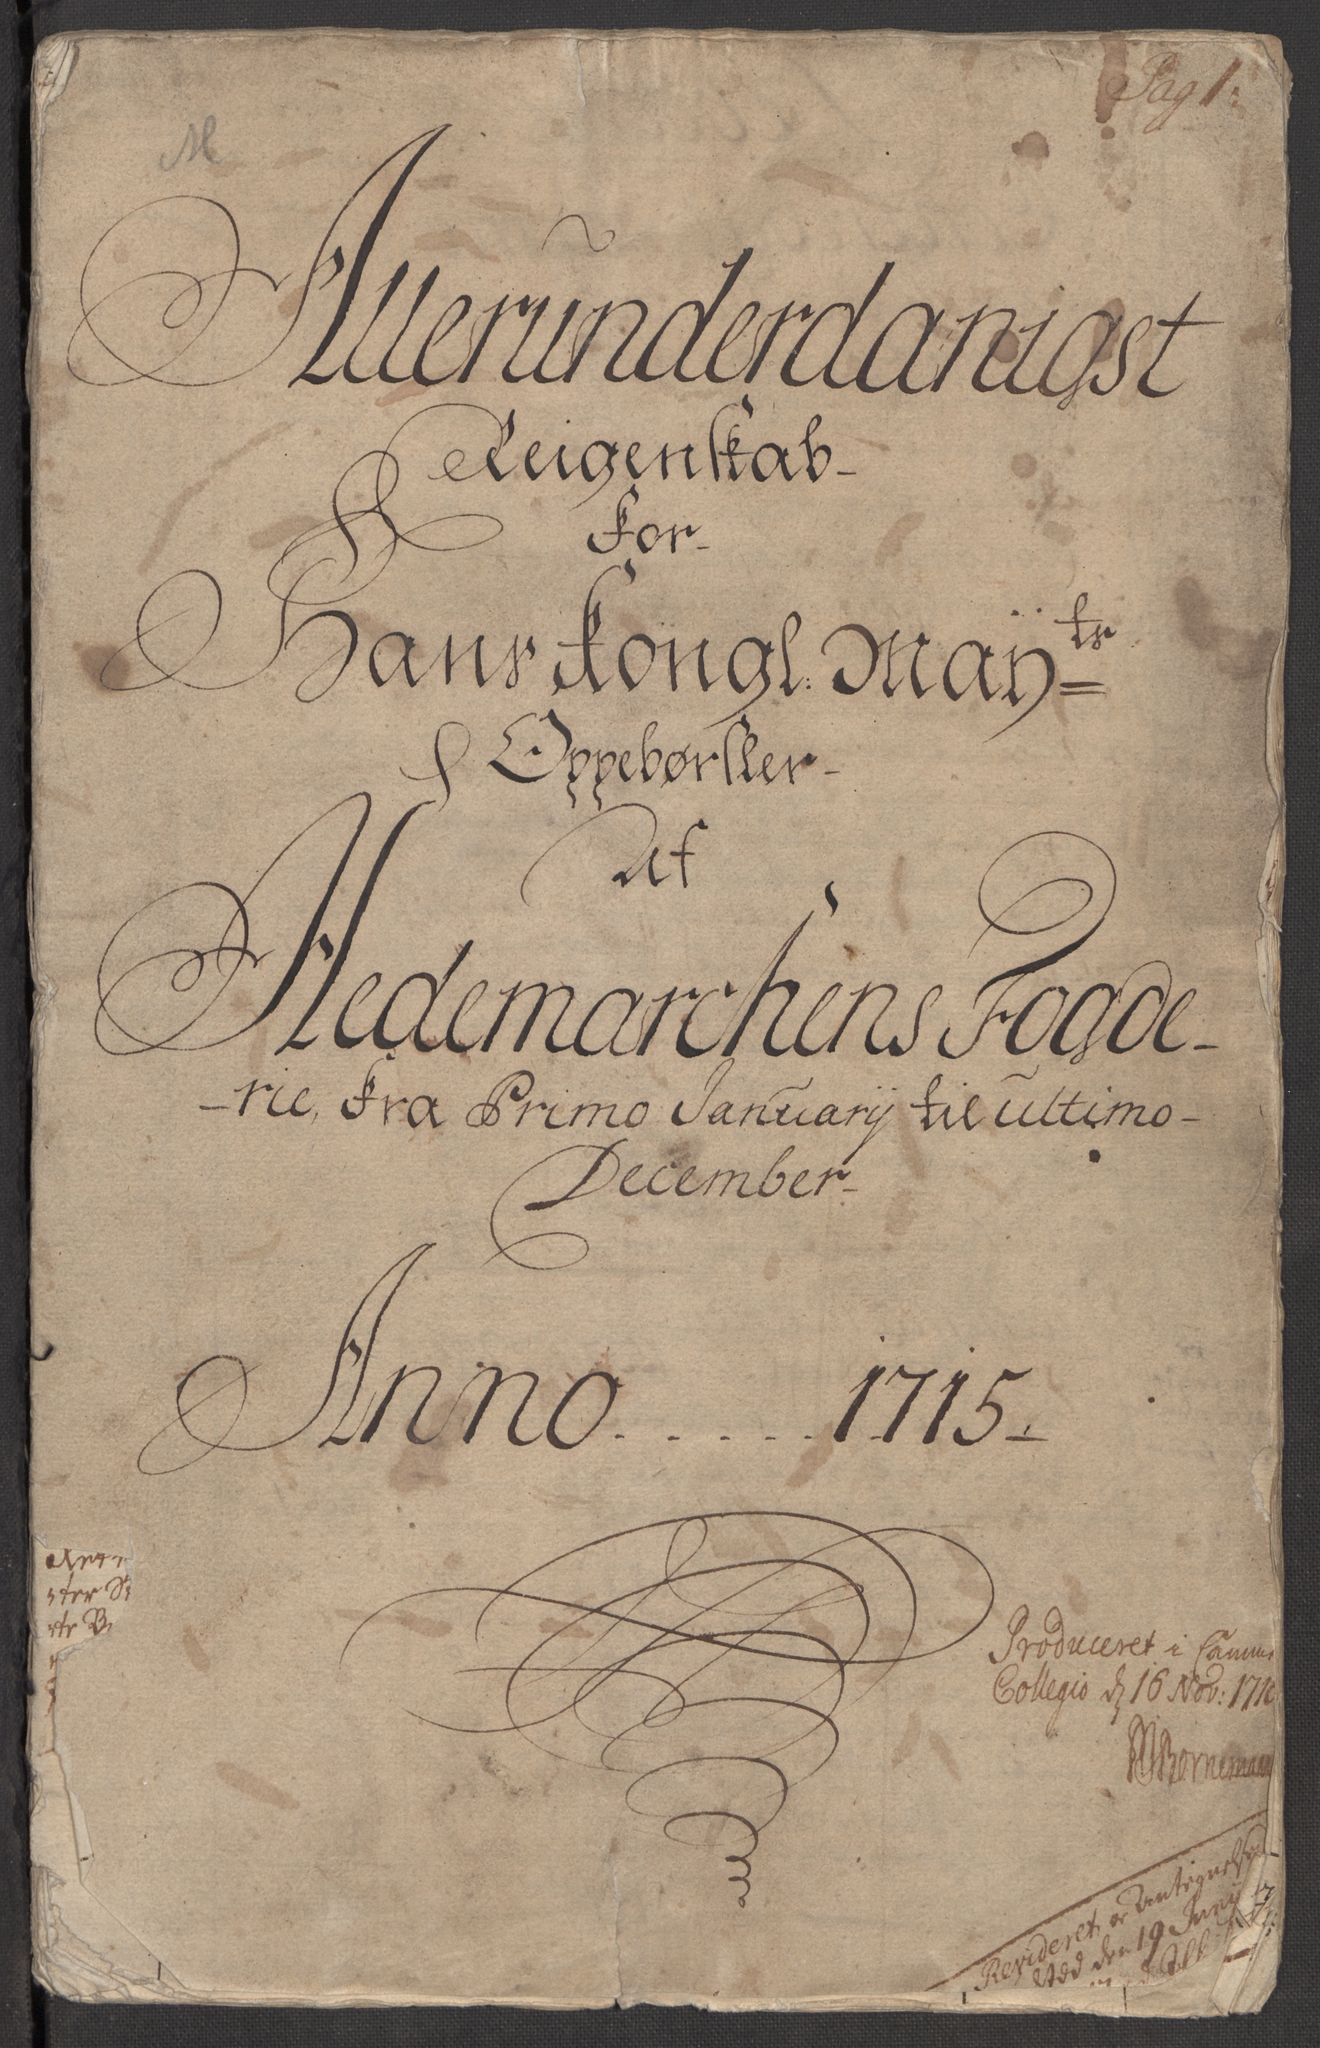 Pag 1:
M
Allerunderdanigst
Reigenskab
for
Hans Kongl: Maÿtr
Oppebørsler
Af
Hedemarchens Fogde-
-rie, fra Primo Januarij til ultimo
December
Anno ..... 1715
Produceret i Camme
Collegio d 16 Nov: 171
Borneman
Revideret
den 19 Junij